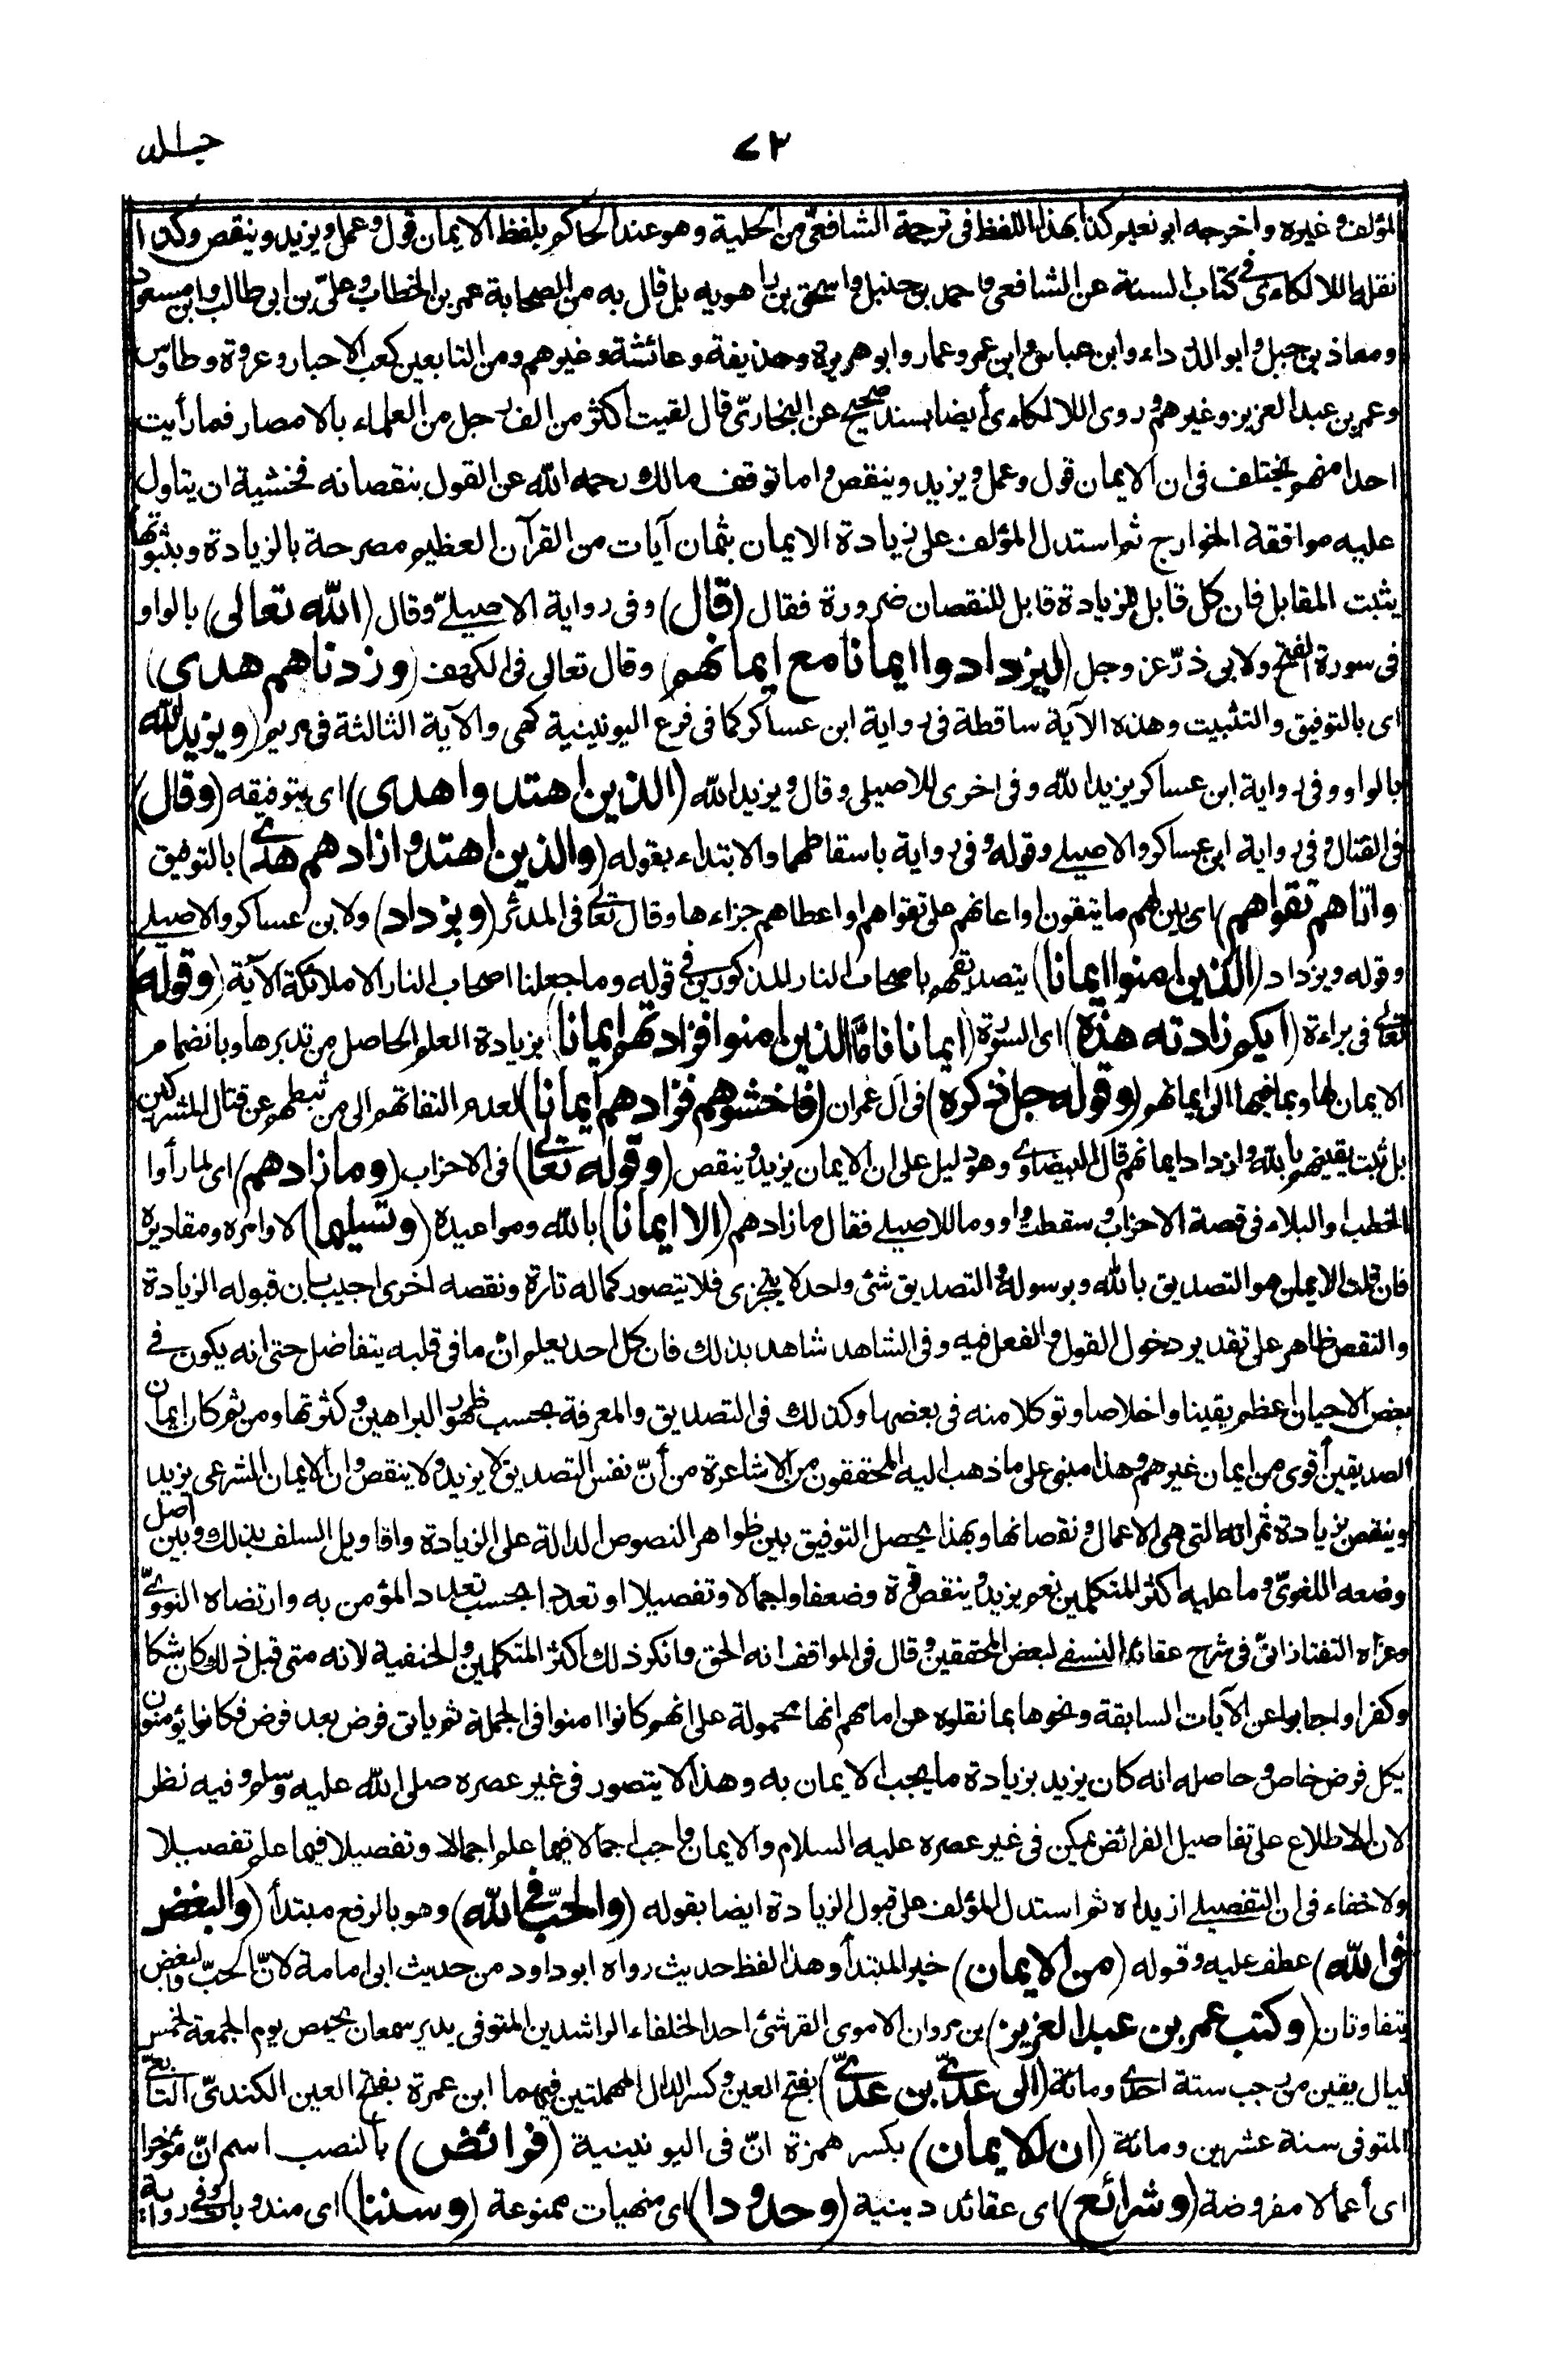 ٧٣
جلد
المؤلف وغيره واخرجه ابو نعيم كذا بهذا اللفظ فى ترجمة الشافعيّ من الحلية وهو عند الحاكم بلفظ الايمان قول وعمل ويزيد وينقص وكذا
نقله اللالكاءى فى كتاب السنة عن الشافعى واحمد بن حنبل واسحق بن راهويه بل قال به من الصحابة عمر بن الخطاب وعلىّ بن ابى طالب وابن مسعود
ومعاذ بن جبل وابو الدرداء وابن عباس وابن عمر وعمار وابو هريرة وحذيفة وعائشة وغيرهم ومن التابعين كعب الاحبار وعروة وطاوس
وعمر بن عبد العزيز وغيرهم وروى اللالكاءى أيضا بسند صحيح عن البخاريّ قال لقيت اكثر من الف رجل من العلماء بالامصار فما رأيت
احدا منهم يختلف فى ان الايمان قول وعمل ويزيد وينقص واما توقف مالك رحمه الله عن القول بنقصانه فخشية ان يتاول
عليه موافقة الخوارج ثم استدل المؤلف على زيادة الايمان بثمان آيات من القرآن العظيم مصرحة بالزيادة وبثبوتها
يثبت المقابل فان كل قابل للزيادة قابل للنقصان ضرورة فقال (قال) وفى رواية الاصيلىّ وقال (الله تعالى) بالواو
فى سورة الفتح ولابى ذرّ عز وجل (ليزدادوا ايمانا مع ايمانهم) وقال تعالى فى الكهف (وزدناهم هدى)
اى بالتوفيق والتثبيت وهذه الآية ساقطة فى رواية ابن عساكر كما فى فرع اليونينية كهى والآية الثالثة فى مريم (ويزيد الله
بالواو وفى رواية ابن عساكر يزيد الله وفى اخرى للاصيلى وقال ويزيد الله (الذين اهتدوا هدى) اى بتوفيقه (وقال)
فى القتال وفى رواية ابن عساكر والاصيلى وقوله وفى رواية باسقاطهما والابتداء بقوله (والذين اهتدوا زادهم هدى) بالتوفيق
واتاهم تقواهم) اى بين لهم ما يتقون او اعانهم على تقواهم او اعطاهم جزاءها وقال تعالى فى المدثر (ويزداد) ولابن عساكر والاصيلى
وقوله ويزداد (الذين امنوا ايمانا) بتصديقهم باصحاب النار المذكورين فى قوله وما جعلنا اصحاب النار الا ملائكة الآية (وقوله)
تعالى فى براءة (ايكم زادته هذه) اى السورة (ايمانا فامّا الذين امنوا فزادتهم ايمانا) بزيادة العلم الحاصل من تدبرها وبانضمام
الايمان لها وبما فيها الى ايمانهم (وقوله جل ذكره) فى آل عمران (فاخشوهم فزادهم ايمانا) لعدم التفاتهم الى من ثبطهم عن قتال المشركين
بل ثبت يقينهم بالله وازداد ايمانهم قال البيضاوى وهو دليل على ان الايمان يزيد وينقص (وقوله تعالى) فى الاحزاب (وما زادهم) اى لما رأوا
الخطب او البلاء فى قصة الاحزاب وسقطت واو وما للاصيلى فقال ما زادهم (الا ايمانا) بالله ومواعيده (وتسليما) لاوامره ومقاديره
فان قلت الايمان هو التصديق بالله وبرسوله والتصديق شئ واحد لا يتجزى فلا يتصور كماله تارة ونقصه اخرى اجيب بان قبوله الزيادة
والنقص ظاهر على تقدير دخول القول والفعل فيه وفى الشاهد شاهد بذلك فان كل احد يعلم انّ ما فى قلبه يتفاضل حتى انه يكون فى
بعض الاحيان اعظم يقينا واخلاصا وتوكلا منه فى بعضها وكذلك فى التصديق والمعرفة بحسب ظهور البراهين وكثرتها ومن ثم كان ايمان
الصديقين أقوى من ايمان غيرهم وهذا مبنى على ما ذهب اليه المحققون من الاشاعرة من أنّ نفس التصديق لا يزيد ولا ينقص وان الايمان الشرعى يزيد
وينقص بزيادة ثمراته التى هى الاعمال ونقصانها وبهذا يحصل التوفيق بين ظواهر النصوص الدالة على الزيادة واقاويل السلف بذلك وبين اصل
وضعه اللغوىّ وما عليه اكثر المتكلمين نعم يزيد وينقص قوة وضعفا واجمالا وتفصيلا او تعددا بحسب تعدد المؤمن به وارتضاه النووىّ
وعزاه التفتازانىّ فى شرح عقائد النسفى لبعض المحققين وقال فى المواقف انه الحق وانكر ذلك اكثر المتكلمين والحنفية لانه متى قبل ذلك كان شكا
وكفرا واجابوا عن الآيات السابقة ونحوها بما نقلوه عن امامهم انها محمولة على انهم كانوا امنوا فى الجملة ثم ياتى فرض بعد فرض فكانوا يؤمنون
بكل فرض خاص وحاصله انه كان يزيد بزيادة ما يجب الايمان به وهذا لا يتصور فى غير عصره صلى الله عليه وسلم وفيه نظر
لان الاطلاع على تفاصيل الفرائض يمكن فى غير عصره عليه السلام والايمان واجب اجمالا فيما علم اجمالا وتفصيلا فيما علم تفصيلا
ولا خفاء فى ان التفصيلى ازيد اه ثم استدل المؤلف على قبول الزيادة ايضا بقوله (والحبّ فى الله) وهو بالرفع مبتدأ (والبغض
فى الله) عطف عليه وقوله (من الايمان) خبر المبتدأ وهذا لفظ حديث رواه ابو داود من حديث ابى امامة لانّ الحبّ والبغض
يتفاوتان (وكتب عمر بن عبد العزيز) بن مروان الاموى القرشئ احد الخلفاء الراشدين المتوفى بدير سمعان بحمص يوم الجمعة لخمس
ليال بقين من رجب سنة احدى ومائة (الى عدىّ بن عدىّ) بفتح العين وكسر الدال المهملتين فيهما ابن عمرة بفتح العين الكندىّ التابعىّ
المتوفى سنة عشرين ومائة (ان للايمان) بكسر همزة انّ فى اليونينية (فرائض) بالنصب اسم انّ مؤخرا
اى أعمالا مفروضة (وشرائع) اى عقائد دينية (وحدودا) اى منهيات ممنوعة (وسننا) اى مندوبات وفى رواية